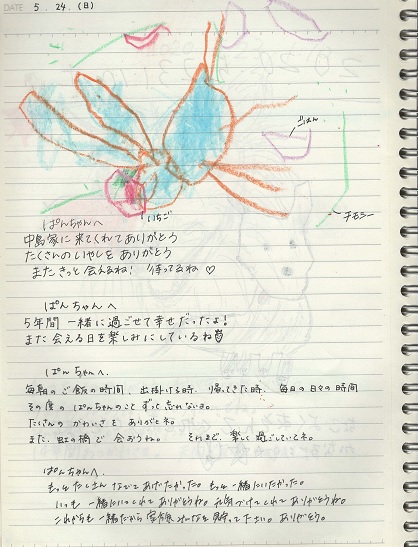 DATE 5. 24. (日)
ごはん
いちご
チモシー
ぱんちゃんへ
中島家に来てくれてありがとう
たくさんのいやしをありがとう
またきっと会えるね! 待ってるね♡
ぱんちゃんへ
5年間 一緒に過ごせて幸せだったよ!
また会える日を楽しみにしているね
ぱんちゃんへ.
毎朝のご飯の時間、出掛ける時、帰ってきた時、毎日の日々の時間
その度のぱんちゃんのこと ずっと忘れないよ。
たくさんの かわいさを ありがとネ。
また、虹の橋で 会おうね。 それまで、楽しく過ごしていてネ。
ぱんちゃんへ。
もっとたくさん なでてあげたかった。もっと一緒にいたかった。
いつも 一緒にいてくれて ありがとうね。元気づけてくれて ありがとうね。
これからも 一緒だから 家族みんなを 守って下さい。ありがとう。